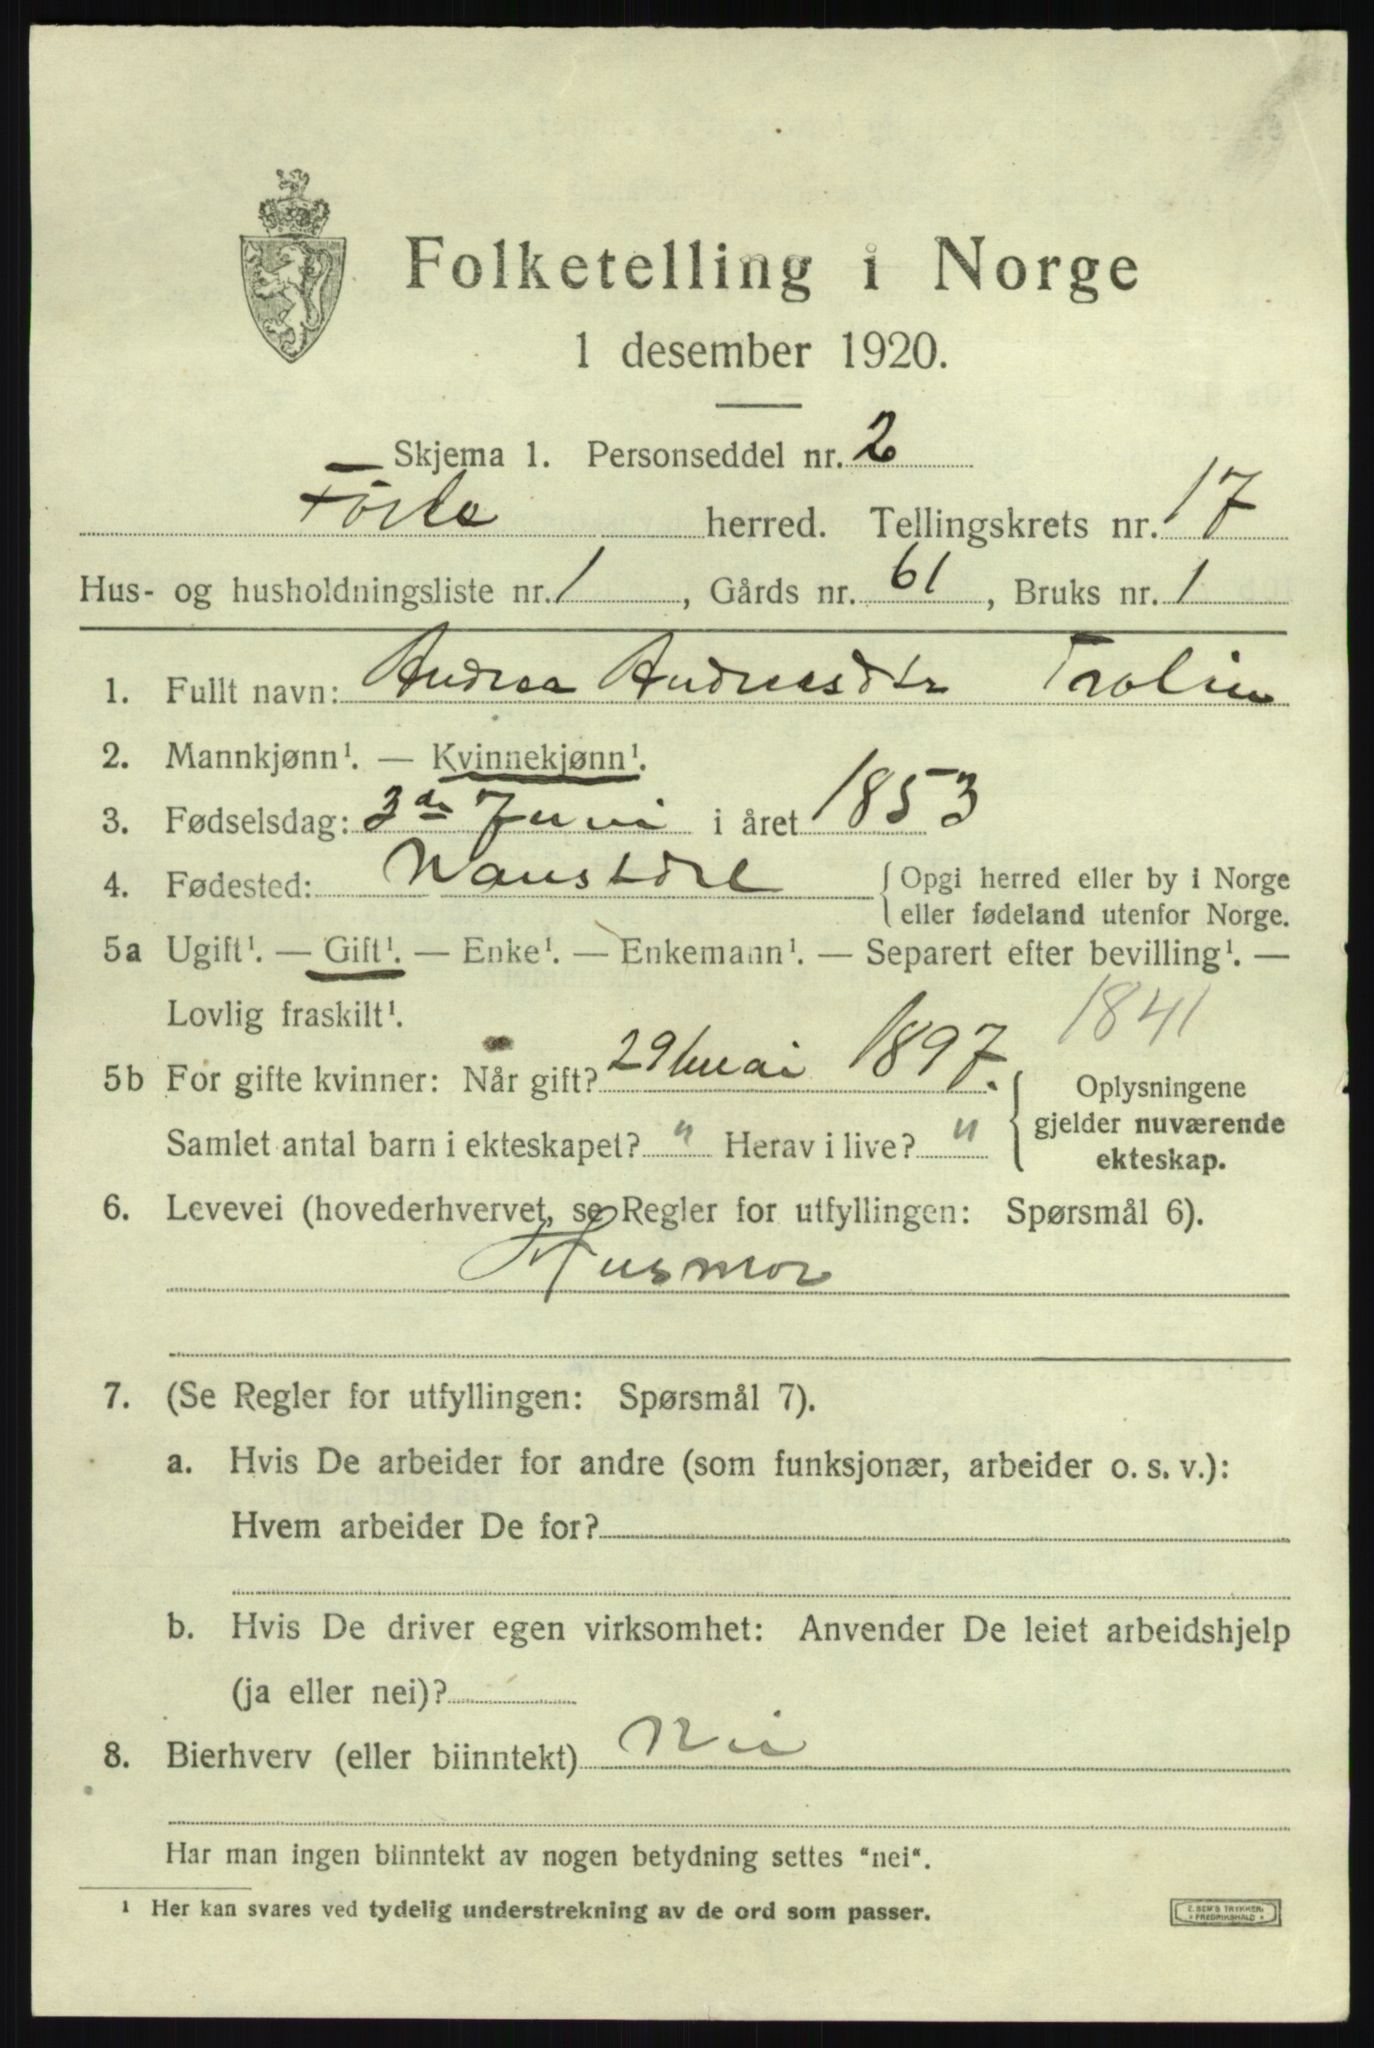 Folketelling i Norge
1 desember 1920.
Skjema 1. Personseddel nr. 2
Førde herred. Tellingskrets nr. 17
Hus- og husholdningsliste nr. 1, Gårds nr. 61, Bruks nr. 1
1. Fullt navn: Andrea Andreasdtr
2. Mannkjønn¹. — Kvinnekjønn¹.
3. Fødselsdag: 3de Juni i året 1853
4. Fødested: Naustdal { Opgi herred eller by i Norge
eller fødeland utenfor Norge.
5a Ugift¹. — Gift¹. — Enke¹. — Enkemann¹. — Separert efter bevilling¹. —
Lovlig fraskilt¹. 1841
5b For gifte kvinner: Når gift? 29 mai 1897. { Oplysningene
gjelder nuværende
Samlet antal barn i ekteskapet? " Herav i live? "
ekteskap.
6. Levevei (hovederhvervet, se Regler for utfyllingen: Spørsmål 6).
Husmor
7. (Se Regler for utfyllingen: Spørsmål 7).
a. Hvis De arbeider for andre (som funksjonær, arbeider o. s. v.):
Hvem arbeider De for?
b. Hvis De driver egen virksomhet: Anvender De leiet arbeidshjelp
(ja eller nei)?
8. Bierhverv (eller biinntekt) Nei
Har man ingen biinntekt av nogen betydning settes "nei".
¹ Her kan svares ved tydelig understrekning av de ord som passer.